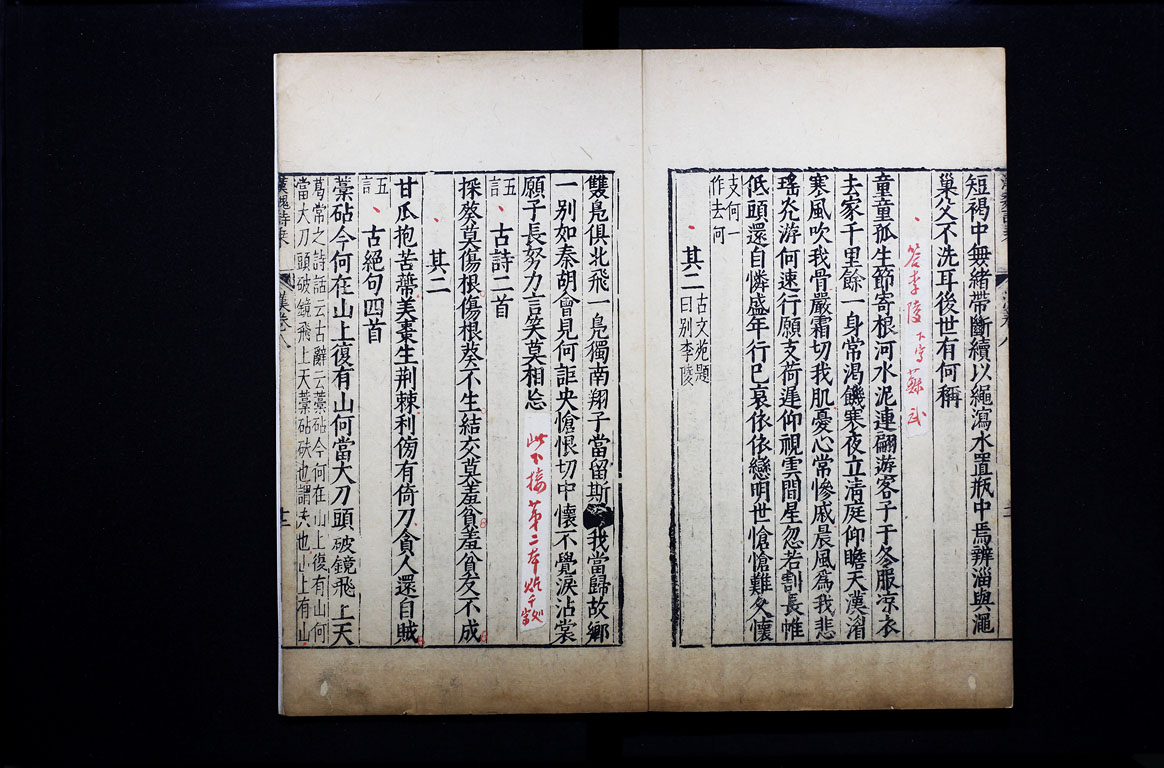 短褐中無緒帶斷續以繩瀉水置瓶中焉辨淄與澠
巢父不洗耳後世有何稱
答李陵 下寫 蘇武
童童孤生節寄根河水泥連翩游客子于冬服涼衣
去家千里餘一身常渴饑寒夜立清庭仰瞻天漢湄
寒風吹我骨嚴霜切我肌憂心常慘戚晨風為我悲
瑤光游何速行願支荷遲仰視雲間星忽若割長帷
低頭還自憐盛年行已衰依依戀明世愴愴難久懷
支何一
作去何
其二 古文苑題
曰別李陵
雙鳧俱北飛一鳧獨南翔子當留斯 我當歸故鄉
一別如秦胡會見何詎央愴恨切中懷不覺淚沾裳
願子長努力言笑莫相忘
此下接第二本
五
言
古詩二首
採葵莫傷根傷根葵不生結交莫羞貧羞貧友不成
其二
甘瓜抱苦蔕美棗生荆棘利傍有倚刀貪人還自賊
五
言
古絕句四首
藁砧今何在山上復有山何當大刀頭破鏡飛上天
葛常之詩話云古辭云藁砧今何在山上復有山何
當大刀頭破鏡飛上天藁砧砆也謂夫也山上有山
漢魏詩乘
漢卷八